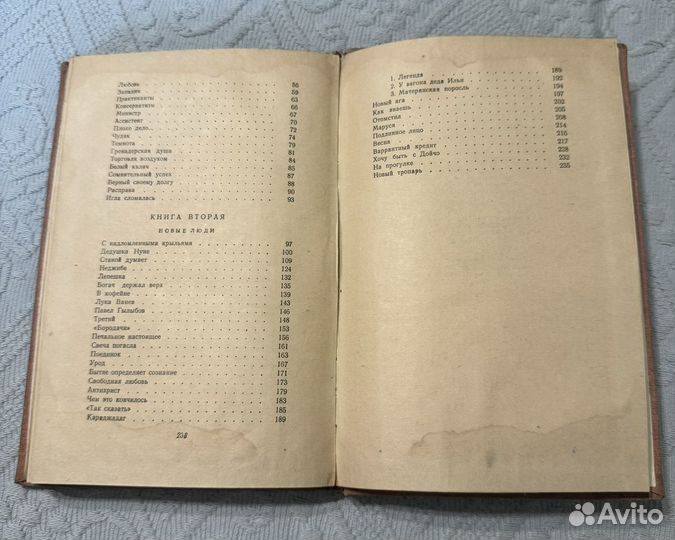 Любовь 56
Западня 59
Практиканты 63
Консерватизм 66
Министр 67
Ассистент 70
Плохо дело... 72
Чудак 74
Темнота 79
Гренадерская душа 81
Торговля воздухом 84
Белый калач 85
Сомнительный успех 87
Верный своему долгу 88
Расправа 90
Игла сломалась 93
КНИГА ВТОРАЯ
НОВЫЕ ЛЮДИ
С надломленными крыльями 97
Дедушка Нуне 100
Станой думает 109
Неджибе 124
Лепешка 132
Богач держал верх 135
В кофейне 139
Лука Ванев 143
Павел Гылыбов 146
Третий 148
«Бородачи» 153
Печальное настоящее 156
Свеча погасла 161
Поединок 163
Урод 167
Бытие определяет сознание 171
Свободная любовь 173
Антихрист 179
Чем это кончилось 183
«Так сказать» 185
Караиджадаг 189
238
1. Легенда 189
2. У вагона деда Ильи 192
3. Материнская поросль 194
Новый ага 197
Как знаешь 202
Отомстил 205
Маруся 208
Подлинное лицо 214
Весна 216
Варрантный кредит 217
Хочу быть с Дойчо 228
На прогулке 232
Новый тропарь 235
Avito